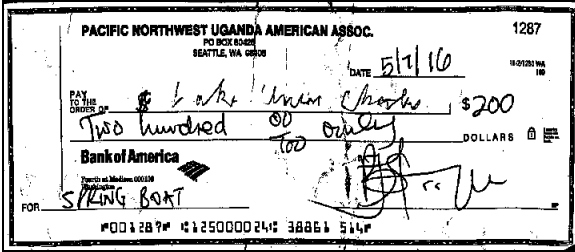 PACIFIC NORTHWEST UGANDA AMERICAN ASSOC. 1287
PO BOX 80426
SEATTLE, WA
DATE 5/7/16
PAY TO THE ORDER OF Lake Union Charters $200
Two hundred 00/100 only DOLLARS
Bank of America
Fourth at Madison
Washington
FOR SPRING BOAT
⑈001287⑈ ⑆125000024⑆ 38861 514⑈